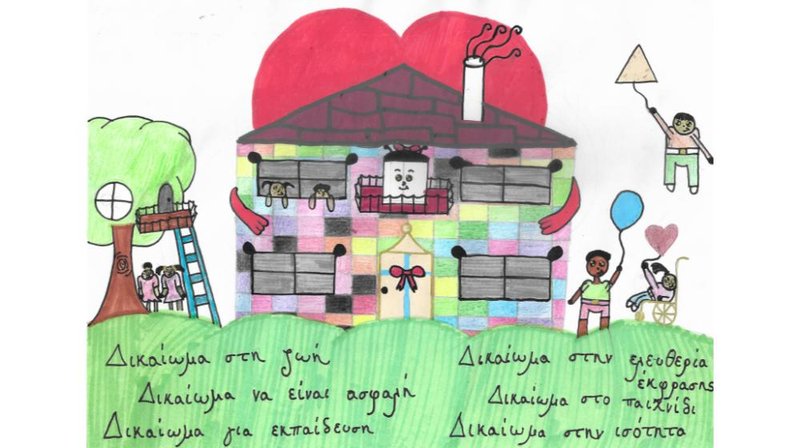 Δικαίωμα στη ζωή
Δικαίωμα να είναι ασφαλή
Δικαίωμα για εκπαίδευση
Δικαίωμα στην ελευθερία
έκφρασης
Δικαίωμα στο παιχνίδι
Δικαίωμα στην ισότητα